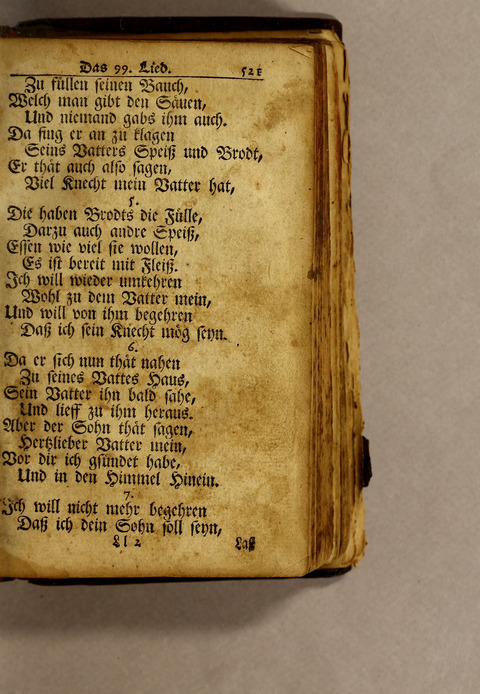 Das 99. Lied. 521
Zu füllen seinen Bauch,
Welch man gibt den Säuen,
Und niemand gabs ihm auch.
Da fing er an zu klagen
Seins Vatters Speiß und Brodt,
Er thät auch also sagen,
Viel Knecht mein Vatter hat,
5.
Die haben Brodts die Fülle,
Darzu auch andre Speiß,
Essen wie viel sie wollen,
Es ist bereit mit Fleiß.
Ich will wieder umkehren
Wohl zu dem Vatter mein,
Und will von ihm begehren
Daß ich sein Knecht mög seyn.
6.
Da er sich nun thät nahen
Zu seines Vattes Haus,
Sein Vatter ihn bald sahe,
Und lieff zu ihm heraus.
Aber der Sohn thät sagen,
Hertzlieber Vatter mein,
Vor dir ich gsündet habe,
Und in den Himmel Hinein.
7.
Ich will nicht mehr begehren
Daß ich dein Sohn soll seyn,
Ll 2 Laß